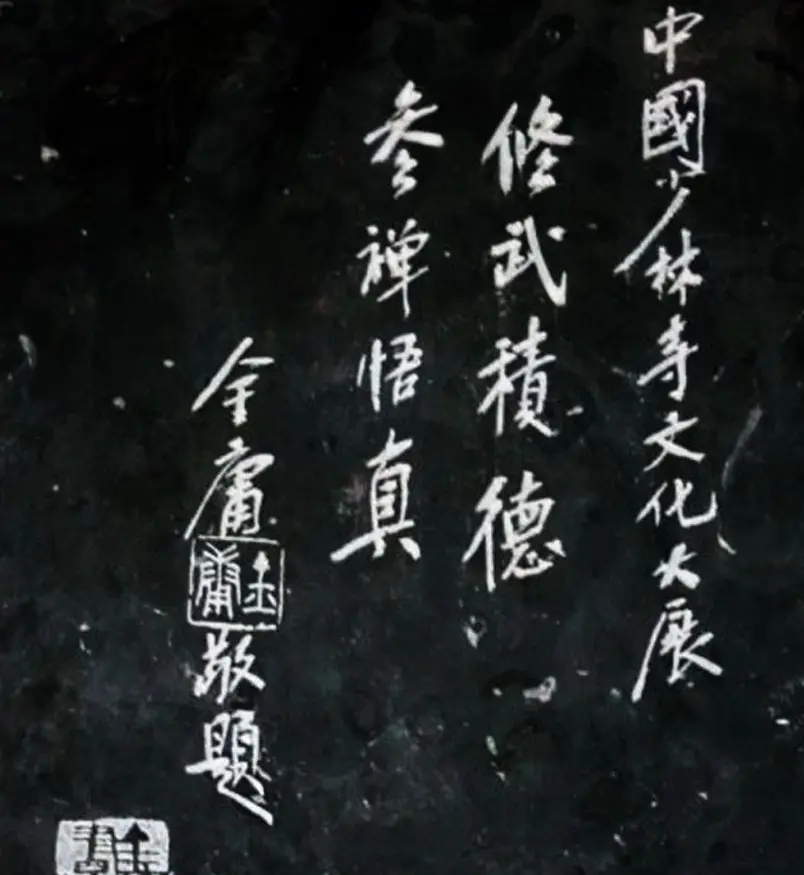 中國少林寺文化大展
修武積德
参禅悟真
金庸
金庸
敬題